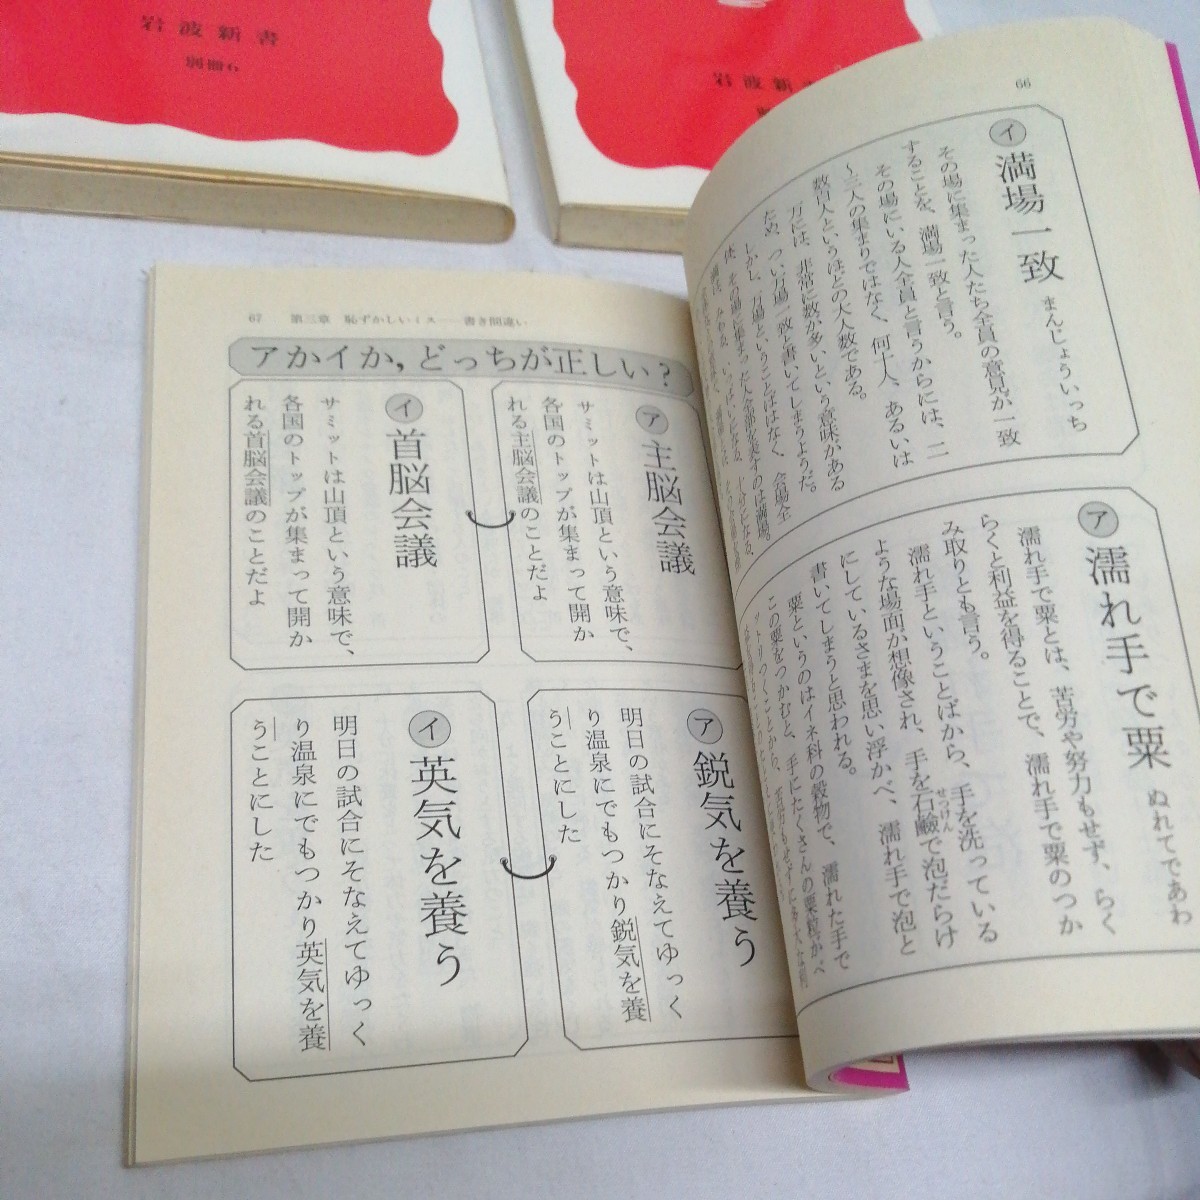 岩波新書
別冊6
岩波新
66
イ
満場一致
まんじょういっち
その場に集まった人たち全員の意見が一致
することを、満場一致と言う。
その場にいる人全員と言うからには、二
〜三人の集まりではなく、何十人、あるいは
数百人というほどの大人数である。
万には、非常に数が多いという意味がある
ため、つい万場一致と書いてしまうようだ。
しかし、万場ということばはなく、会場全
体、その場に集まった人全部を表すのは満場。
ア
濡れ手で粟
ぬれてであわ
濡れ手で粟とは、苦労や努力もせず、らく
らくと利益を得ることで、濡れ手で粟のつか
み取りとも言う。
濡れ手ということばから、手を洗っている
ような場面が想像され、手を石鹼で泡だらけ
せっけん
にしているさまを思い浮かべ、濡れ手で泡と
書いてしまうと思われる。
粟というのはイネ科の穀物で、濡れた手で
この粟をつかむと、手にたくさんの粟粒がべ
67 第三章 恥ずかしいミス――書き間違い
アかイか,どっちが正しい?
ア
主脳会議
サミットは山頂という意味で、
各国のトップが集まって開か
れる主脳会議のことだよ
イ
首脳会議
サミットは山頂という意味で、
各国のトップが集まって開か
れる首脳会議のことだよ
ア
鋭気を養う
明日の試合にそなえてゆっく
り温泉にでもつかり鋭気を養
うことにした
イ
英気を養う
明日の試合にそなえてゆっく
り温泉にでもつかり英気を養
うことにした